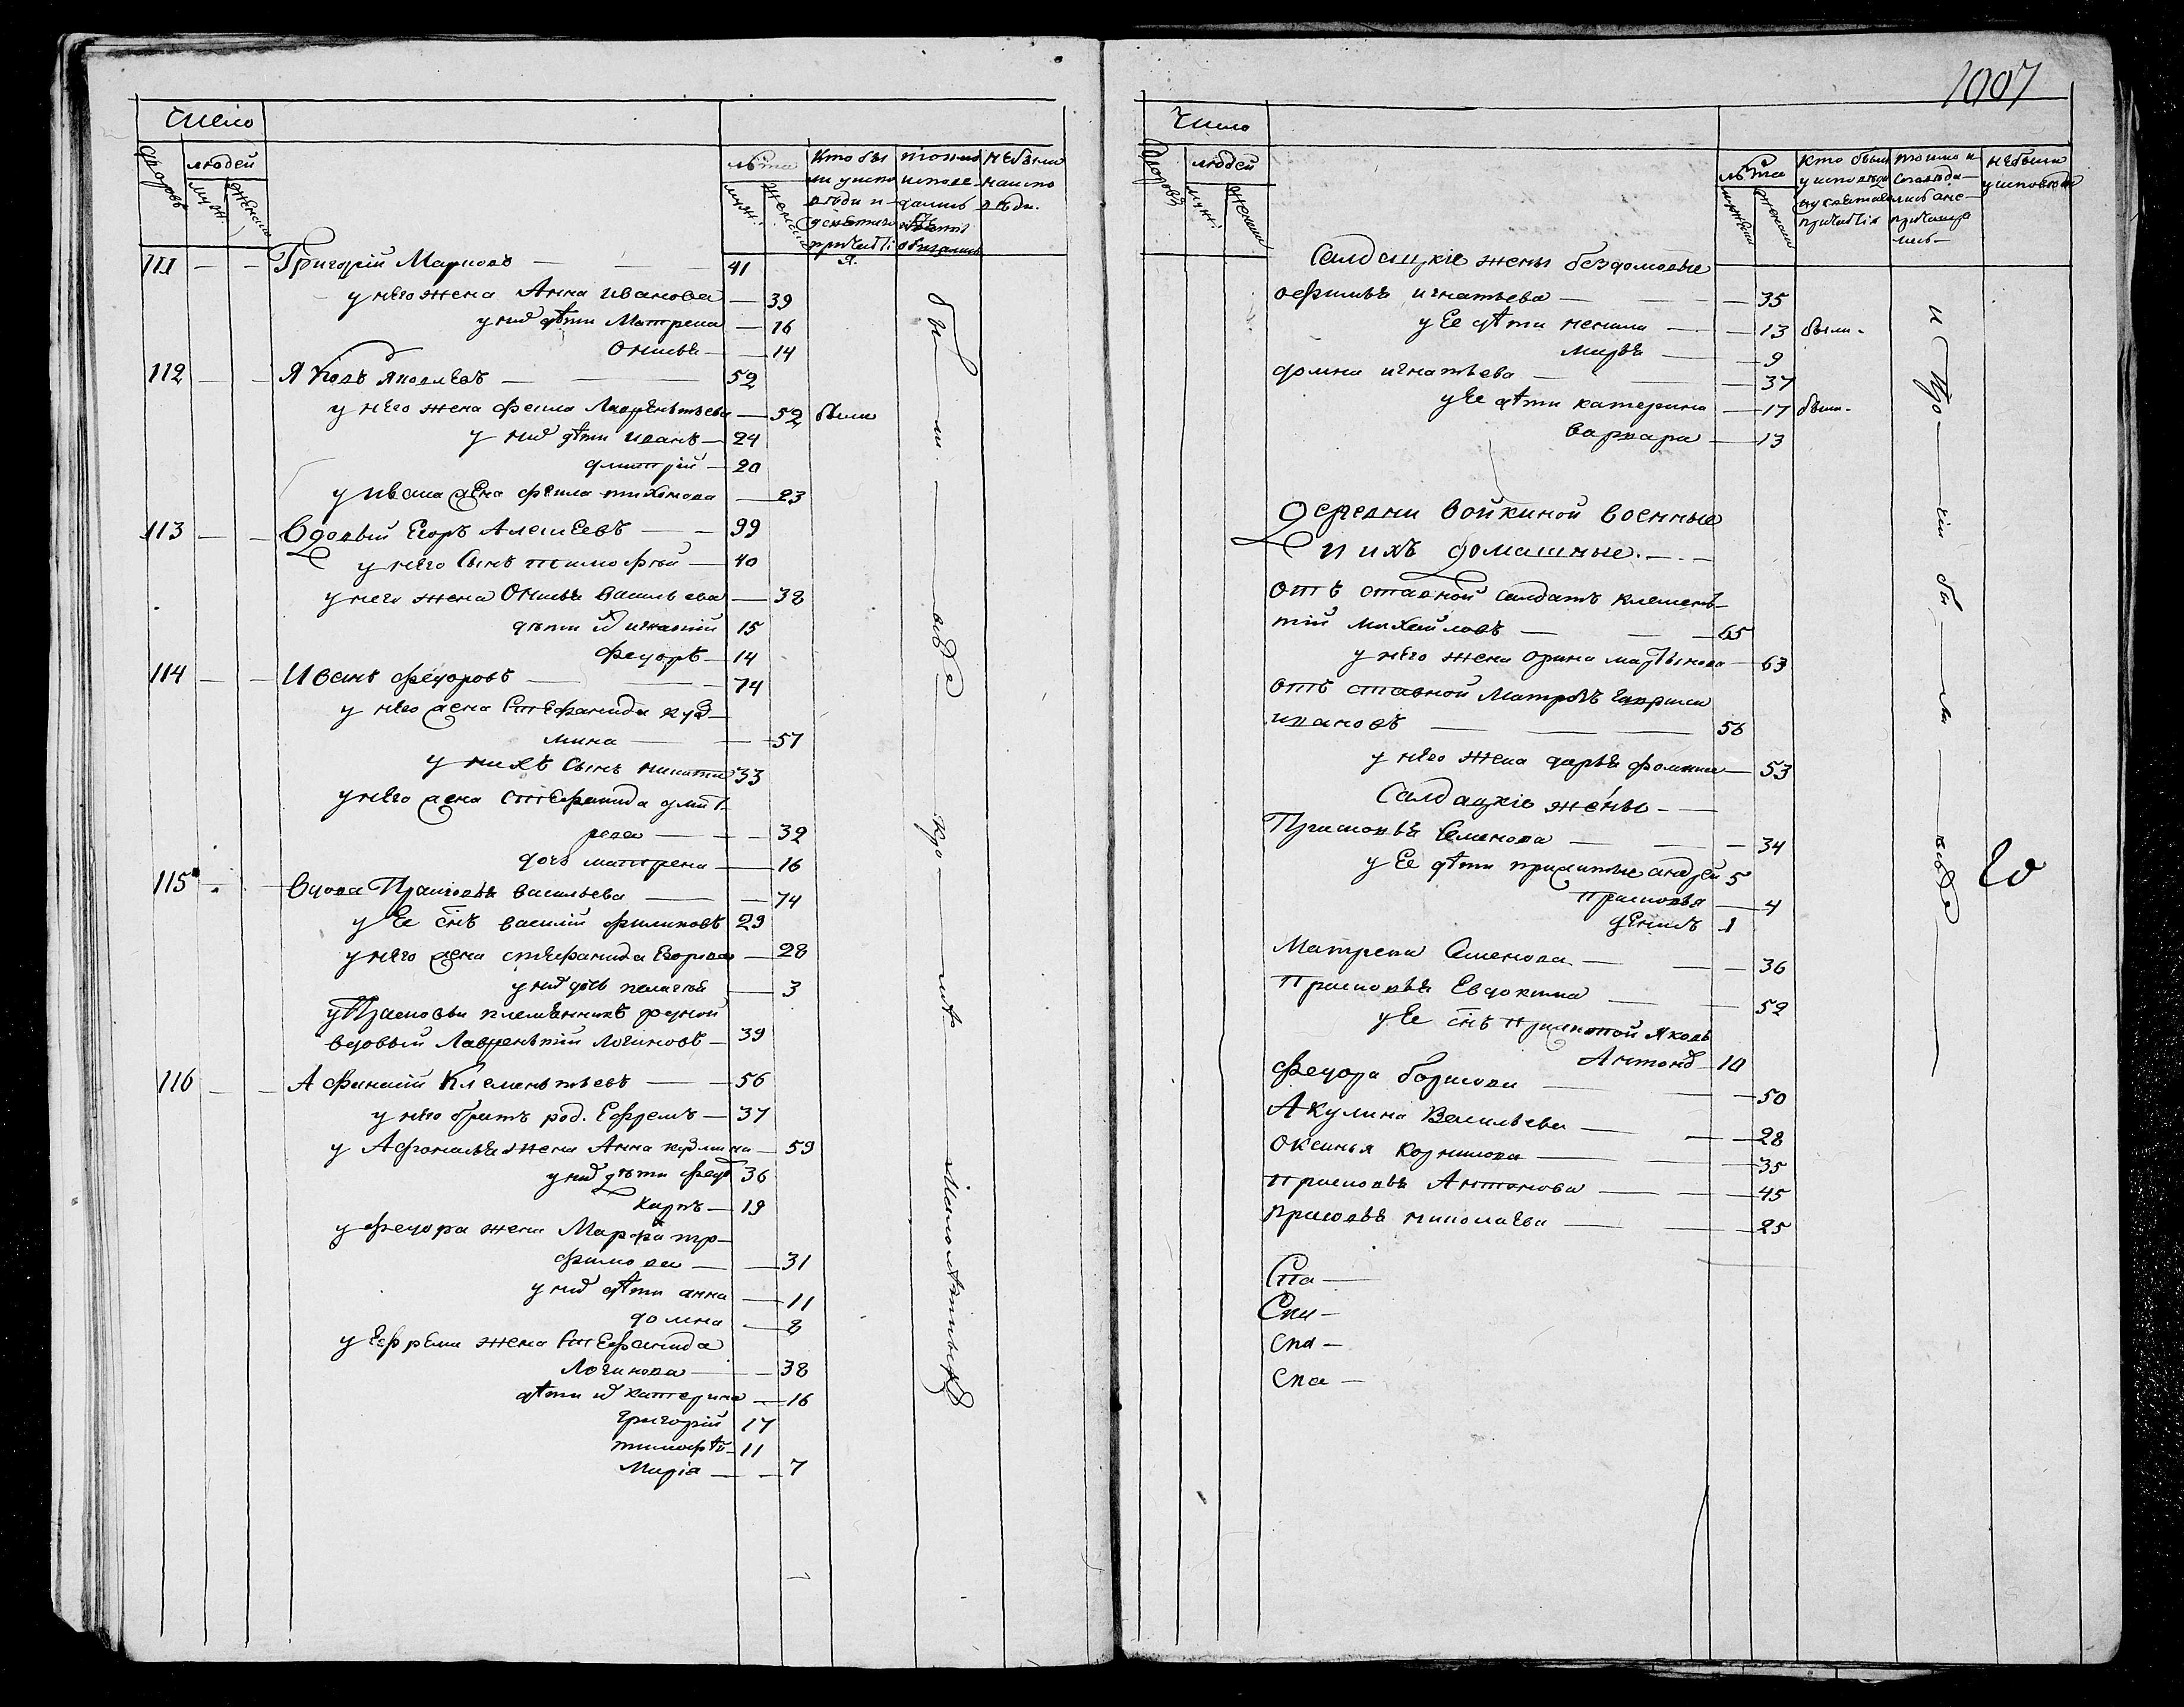 Число
дворовъ
людей
муж.
женска
лѣта
муж.
женска
Кто бы
ли у испо
вѣди и
причасті
я.
токмо
испове
дались
не были
на испо
вѣди.
111 Григорій Марковъ 41
у него жена Анна Иванова 39
у них дѣти Матрена 16
Онисья 14
112 Яковъ Яковлевъ 52
у него жена Фекла Лаврентьева 52 были
у них дѣти Иванъ 24
Дмитрій 20
у Ивана жена Фекла Тихонова 23
113 Вдовый Егоръ Алексеевъ 99
у него Сынъ Тимофѣй 40
у него жена Онисья Васильева 38
дѣти их Игнатій 15
Федоръ 14
114 Иванъ Федоровъ 74
у него жена Стефанида Куз
мина 57
у нихъ Сынъ Никита 33
у него жена Стефанида Дмит
рева 32
дочь Матрена 16
115 Вдова Прасковья Васильева 74
у Ее снъ Василій Филиповъ 29
у него жена Стефанида Егорова 28
у них дочь Пелагѣя 3
у Прасковьи племянникъ родной
вдовый Лаврентій Логиновъ 39
116 Афанасій Клементьевъ 56
у него братъ род. Ефремъ 37
у Афонасья жена Анна Кузмина 59
у них дѣти Федор 36
Карпъ 19
у Федора жена Марфа Тро
фимова 31
у них дѣти Анна 11
Домна 8
у Ефрема жена Стефанида
Логинова 38
дѣти их Катерина 16
Григорій 17
Тимофѣй 11
Марія 7
бы ли
вездѣ
кро мѣ
малолѣтныхъ
1007
Число
Дворовъ
людей
муж.
женски
лѣта
мужски
женски
Кто были
у исповѣди
причастія
токмо и
исповѣда
лись а не
причаща
лись
не были
у исповѣди
Салдацкіе жены бездомовые
Офимья Игнатьева 35
у Ее дѣти Ненила 13 были.
Марья 9
Домна Игнатьева 37
у Ее дѣти Катерина 17 были.
Варвара 13
Деревни Войкиной военные
и ихъ домашные.
отъ ставной Салдатъ Клемень
тій Михайловъ 65
у него жена Орина Мартынова 63
отъ ставной Матрозъ Гаврила
Ивановъ 56
у него жена Дарья Фомина 53
Салдацкіе жены
Прасковья Семенова 34
у Ее дѣти прижитые Андрей 5
Прасковья 4
Денисъ 1
Матрена Семенова 36
Прасковья Евдокимова 52
у Ее снъ прижитой Яковъ
Антонов 10
Федора Борисова 50
Акулина Васильева 28
Оксинья Корнилова 35
Прасковья Антонова 45
Прасковья Николаева 25
Спа
Спа
Спа
Спа
и про чіи бы ли вездѣ